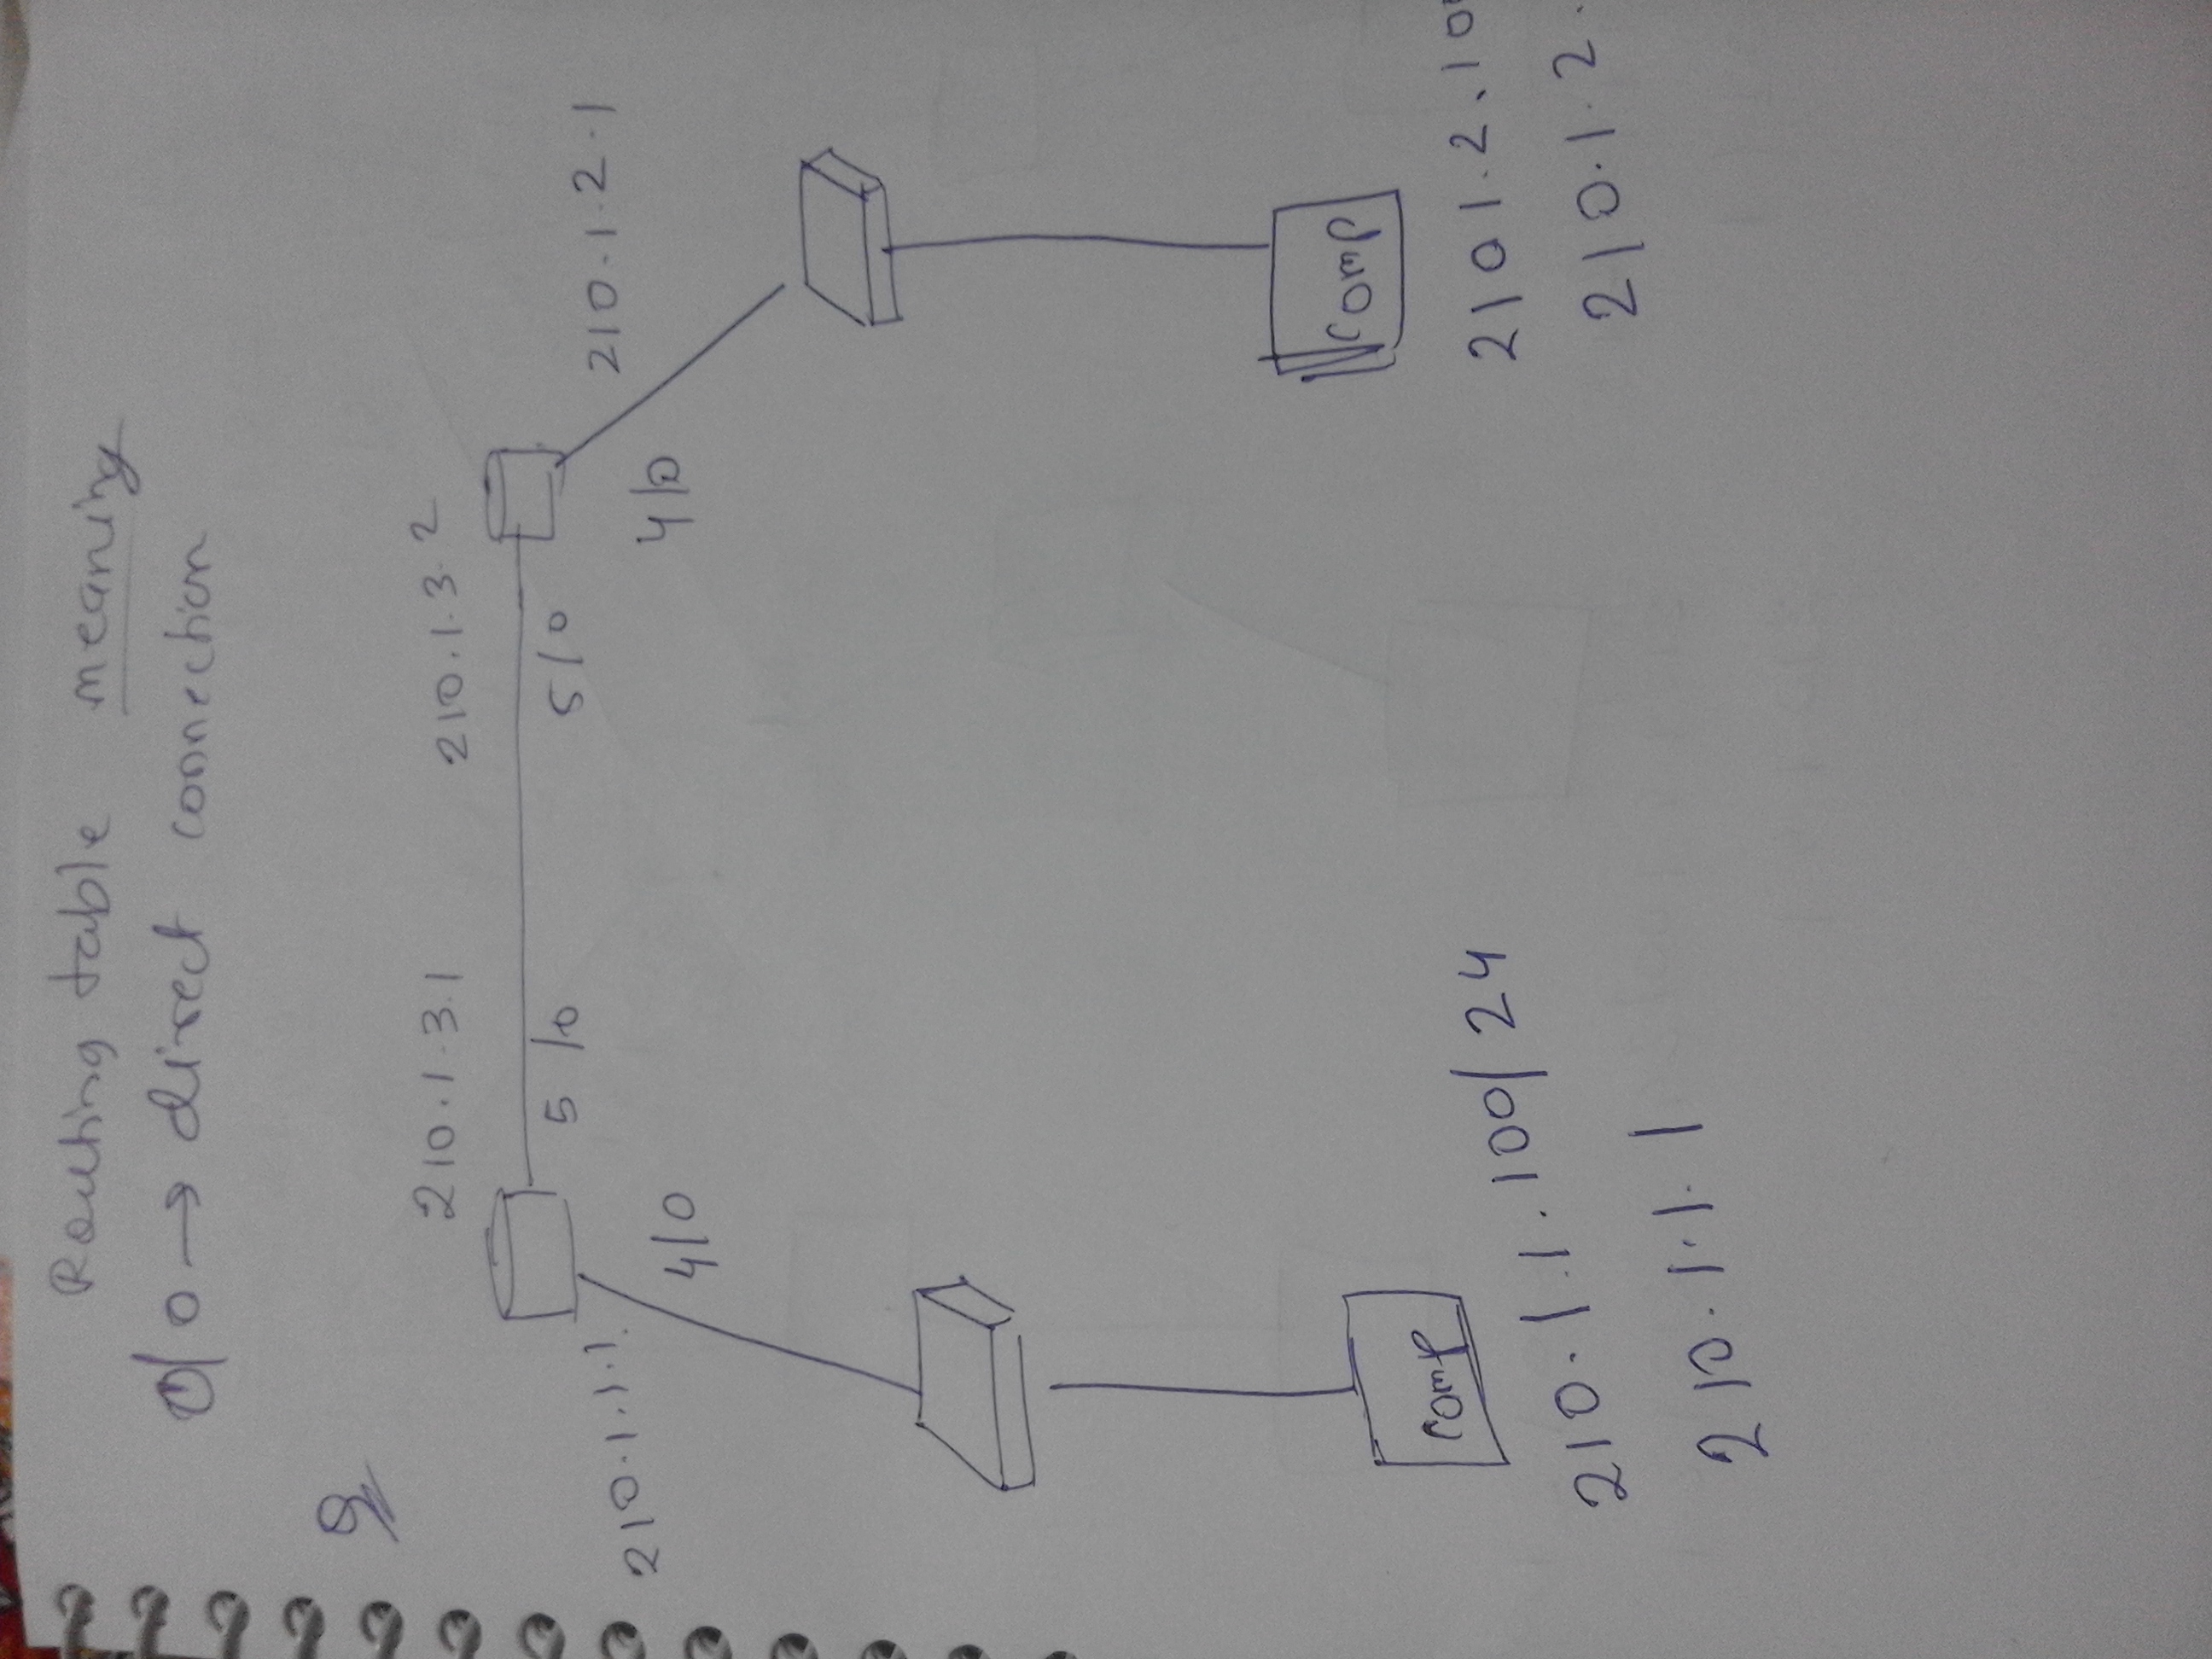 Routing table meaning
0/0 → direct connection
Q
210.1.3.1 210.1.3.2
5/0 5/0
210.1.1.1. 210.1.2.1
4/0 4/0
comp comp
210.1.1.100/24 2101.2.10
210.1.1.1 210.1.2.